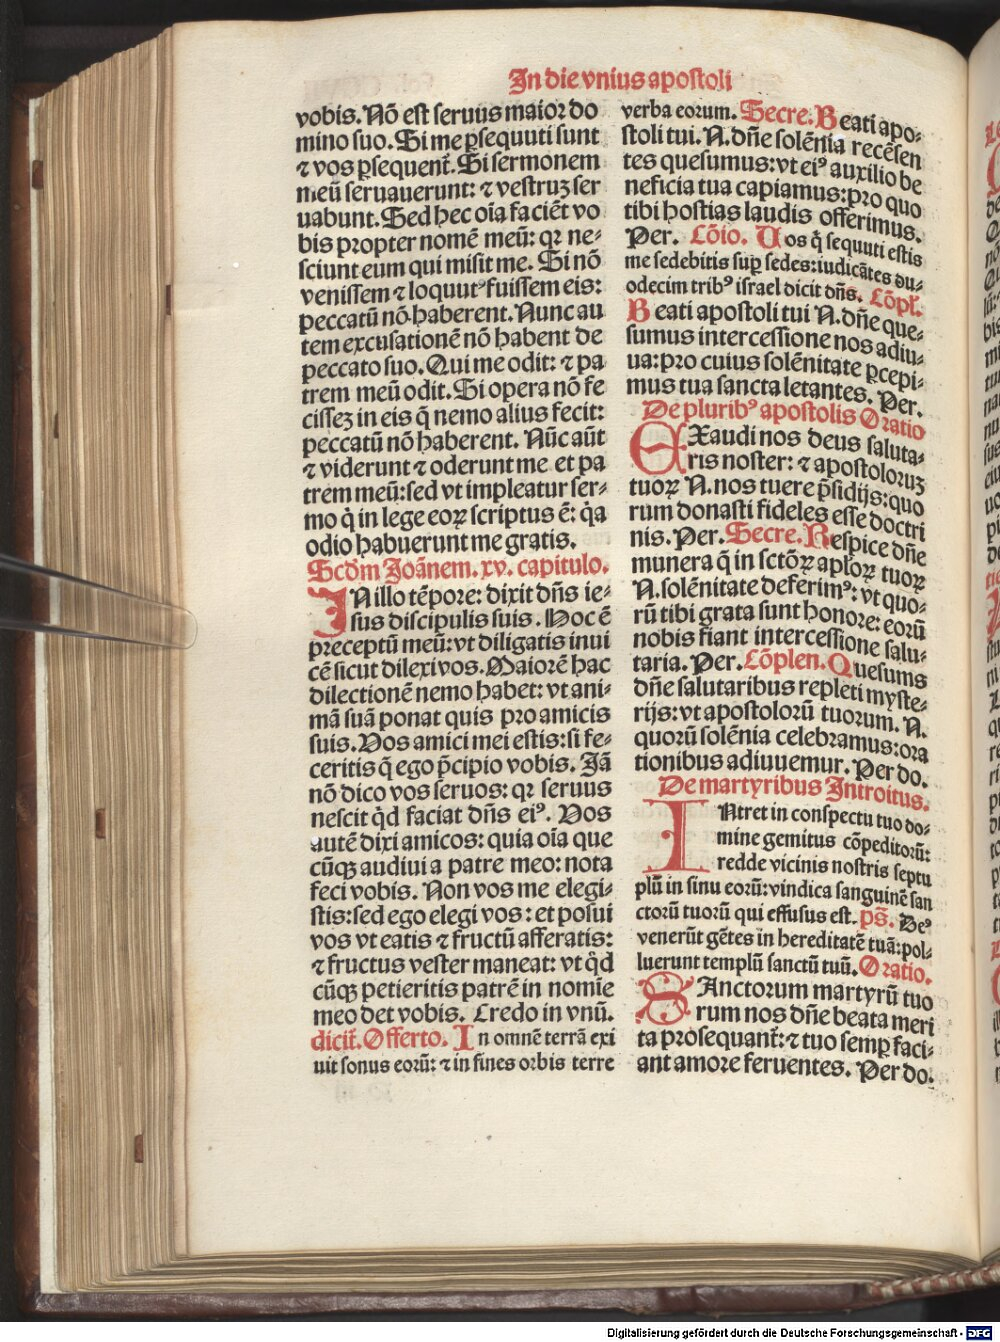 In die vnius apostoli
vobis. Nō est seruus maior do
mino suo. Si me ꝑsequuti sunt
⁊ vos ꝑsequent̄. Si sermonem
meū seruauerunt: ⁊ vestruꝫ ser
uabunt. Sed hec oīa faciēt vo
bis propter nomē meū: qꝛ ne⸗
sciunt eum qui misit me. Si nō
venissem ⁊ loquutꝰ fuissem eis:
peccatū nō haberent. Nunc au
tem excusationē nō habent de
peccato suo. Qui me odit: ⁊ pa
trem meū odit. Si opera nō fe
cisseꝫ in eis q̄ nemo alius fecit:
peccatū nō haberent. Nūc aūt
⁊ viderunt ⁊ oderunt me et pa
trem meū: sed vt impleatur ser⸗
mo q̇ in lege eoꝝ scriptus ē: q̇a
odio habuerunt me gratis.
Scd̄m Joānem. xv. capitulo.
IN illo tēpore: dixit dn̄s ie⸗
sus discipulis suis. Hoc ē
preceptū meū: vt diligatis inui
cē sicut dilexi vos. Maiorē hac
dilectionē nemo habet: vt ani⸗
mā suā ponat quis pro amicis
suis. Vos amici mei estis: si fe⸗
ceritis q̄ ego p̄cipio vobis. Jā
nō dico vos seruos: qꝛ seruus
nescit qͥd faciat dn̄s eiꝰ. Vos
autē dixi amicos: quia oīa que
cūqꝫ audiui a patre meo: nota
feci vobis. Non vos me elegi⸗
stis: sed ego elegi vos: et posui
vos vt eatis ⁊ fructū afferatis:
⁊ fructus vester maneat: vt qͥd
cūqꝫ petieritis patrē in nomīe
meo det vobis. Credo in vnū.
dicit̄. Offerto. In omnē terrā exi
uit sonus eorū: ⁊ in fines orbis terre
verba eorum. Secre. Beati apo⸗
stoli tui. N. dn̄e solēnia recēsen
tes quesumus: vt eiꝰ auxilio be
neficia tua capiamus: pro quo
tibi hostias laudis offerimus.
Per. Cōio. Vos q̇ sequuti estis
me sedebitis suꝑ sedes: iudicātes du⸗
odecim tribꝰ israel dicit dn̄s. Cōpl̄.
Beati apostoli tui N. dn̄e que⸗
sumus intercessione nos adiu⸗
ua: pro cuius solēnitate ꝑcepi⸗
mus tua sancta letantes. Per.
De pluribꝰ apostolis Oratio
EXaudi nos deus saluta⸗
ris noster: ⁊ apostoloruꝫ
tuoꝝ N. nos tuere p̄sidijs: quo
rum donasti fideles esse doctri
nis. Per. Secre. Respice dn̄e
munera q̄ in sctōꝝ apl̄oꝝ tuoꝝ
N. solēnitate deferimꝰ: vt quo⸗
rū tibi grata sunt honore: eorū
nobis fiant intercessione salu⸗
taria. Per. Cōplen. Quesums
dn̄e salutaribus repleti myste⸗
rijs: vt apostolorū tuorum. N.
quorū solēnia celebramus: ora
tionibus adiuuemur. Per do.
De martyribus Introitus.
INtret in conspectu tuo do⸗
mine gemitus cōpeditorū:
redde vicinis nostris septu
plū in sinu eorū: vindica sanguinē san
ctorū tuorū qui effusus est. ps̄. Deꝰ
venerūt gētes in hereditatē tuā: pol⸗
luerunt templū sanctū tuū. Oratio.
SAnctorum martyrū tuo
rum nos dn̄e beata meri
ta prosequant̄: ⁊ tuo semꝑ faci⸗
ant amore feruentes. Per do.
Digitalisierung gefördert durch die Deutsche Forschungsgemeinschaft - DFG